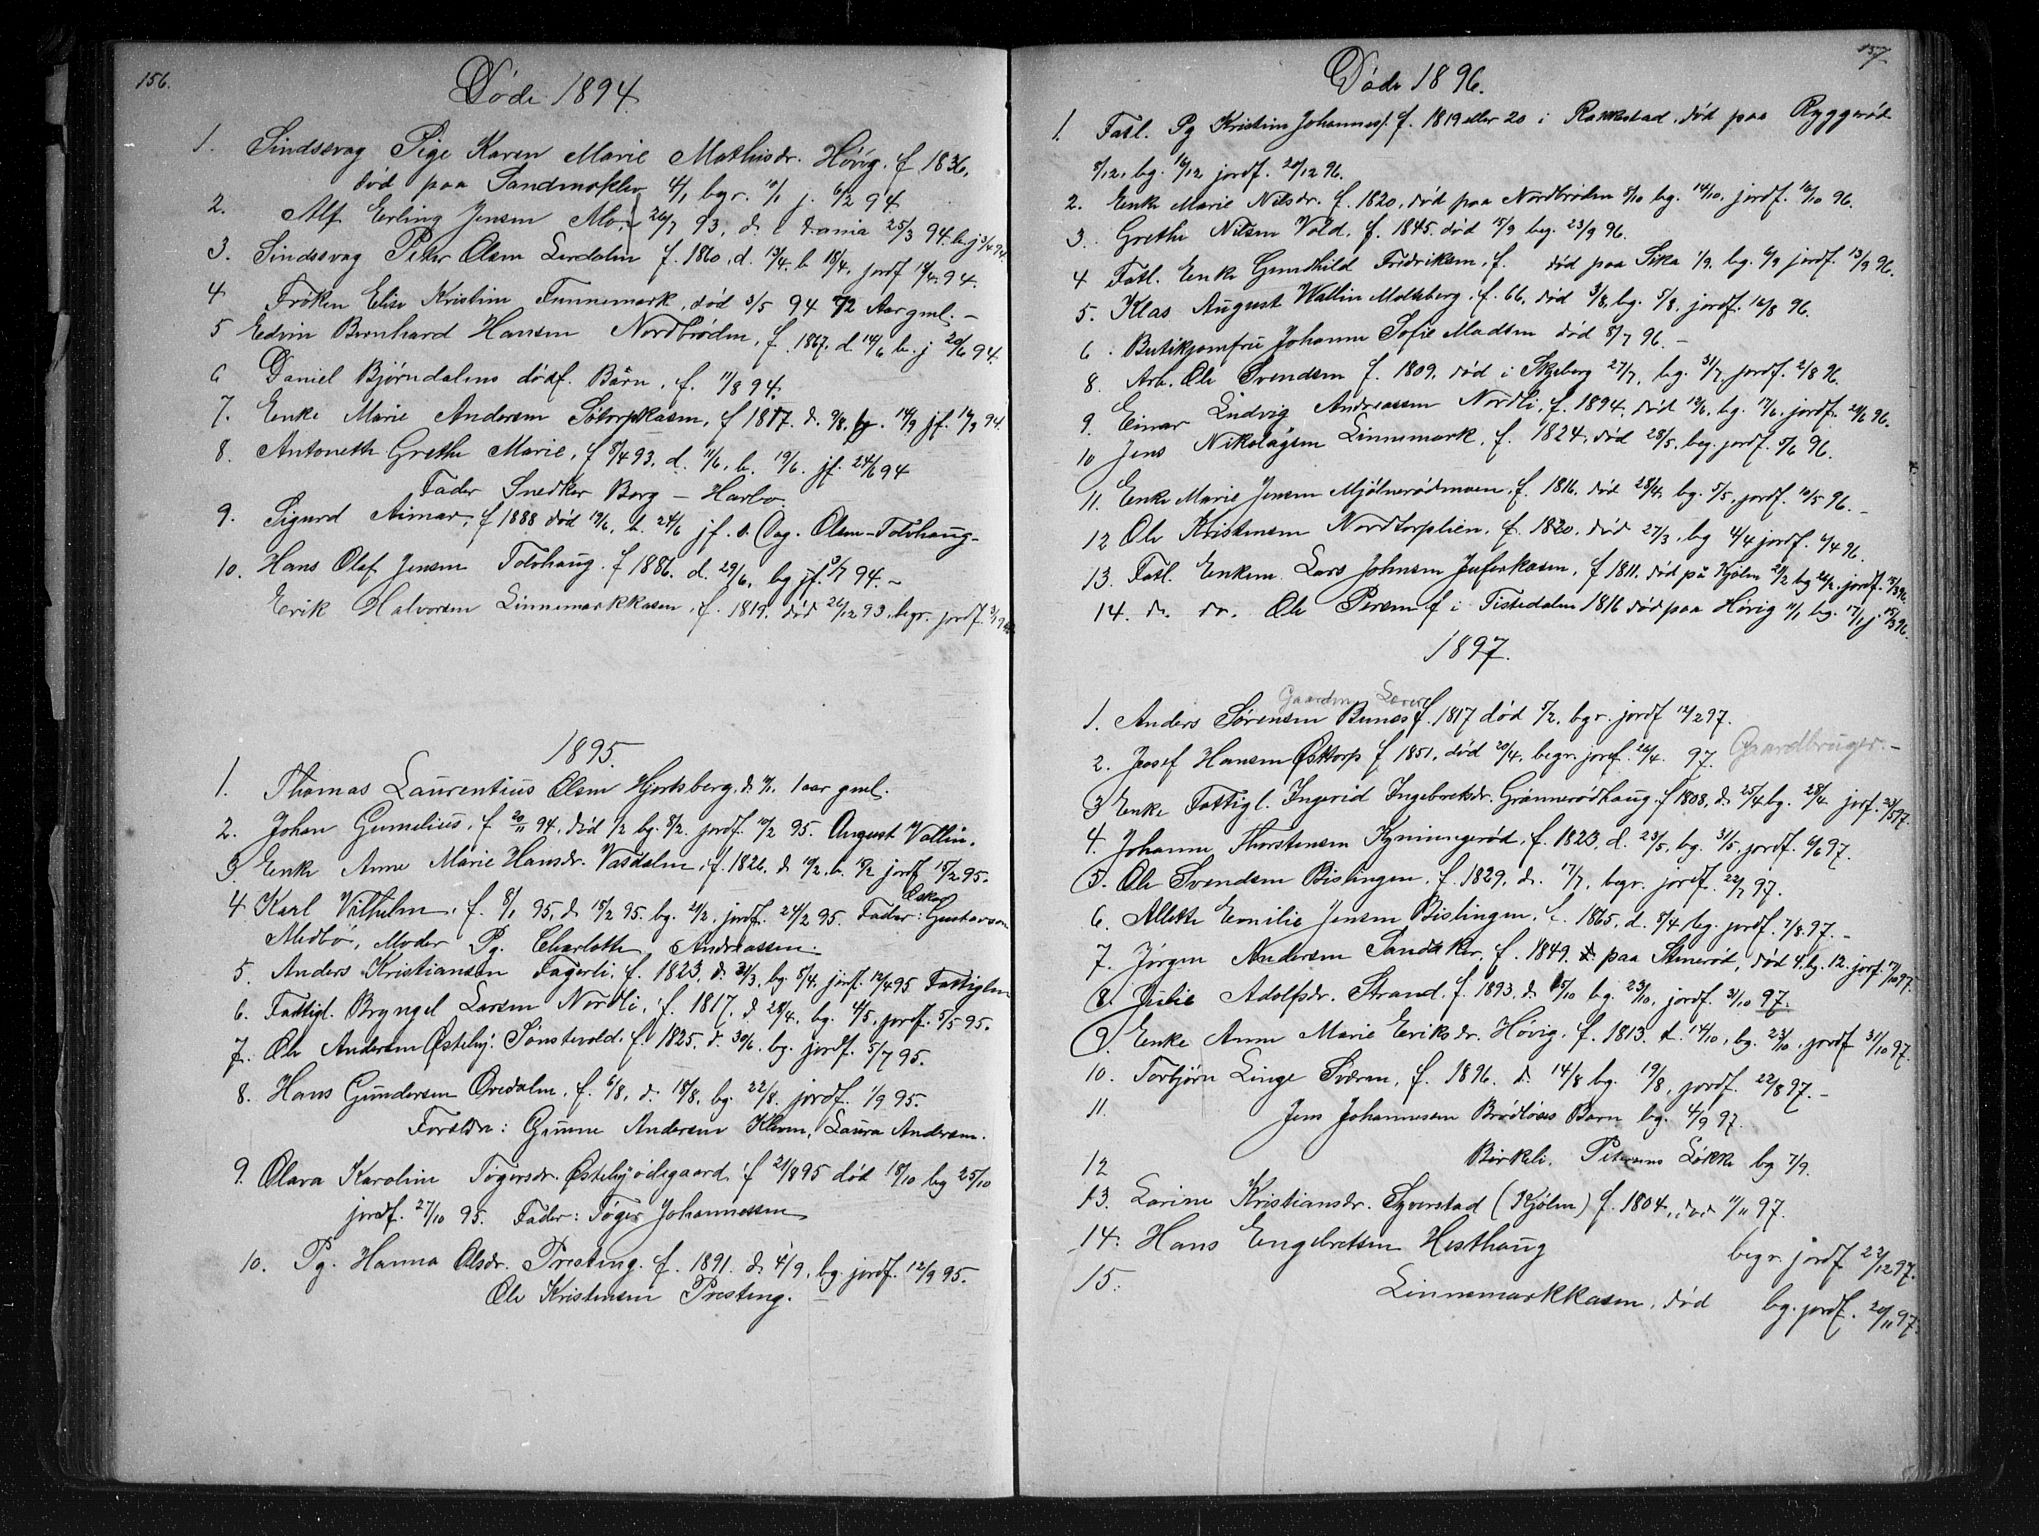 156.
Døde 1894
1. Sindssvag Pige Karen Marie Mathisdr. Høvig. f. 1836,
død paa Sandmoklev 4/1, bgr. 10/1 j. 6/2 94
2. Alf Erling Jensen Mo, 26/7 93, d. i 25/3 94. b. j 3/4 94.
3. Sindssvag Peter Olsen Lerdalen f. 1860, d. 13/4. b. 18/4, jordf 14/4. 94.
4 Frøken Elise Kristine Funnemark, død 3/5 94 72 Aar gml. –
5 Edvin Bernhard Hansen Nordbrøden, f. 1867. d. 14/6 b. j 20/6 94.
6 Daniel Bjørndalens dødf. Barn, f. 11/8 94.
7. Enke Marie Andersen Søtorpkasen, f 1817. d. 9/8. by. 14/9 jf. 14/9 94.
8. Antoneth Grethe Marie, f 8/4 93, d. 11/6, b. 19/6. jf. 24/6 94
Fader Snedker Borg – Harbo
9. Sigurd Aimar, f 1888 død 19/6, b. 24/6 jf. s. Dag. Olsen – Tolvhaug –
10. Hans Olaf Jensen Tolvhaug. f 1886. d. 29/6, bg jf. 3/7 94. –
Erik Halvorsen Linnemarkkasen, f. 1819. død 26/12 93, begr. jordf. 3/1 94
1895.
1. Thomas Laurentius Olsen Hjorksberg, d. 1 aar gml.
2. Johan Gumelius, f 20/11 94, død 1/2 bg. 8/2. jordf. 10/2 95. August Vallin.
3. Enke Anne Marie Hansdr. Vasdalen, f. 1826. d. 10/2. b. 15/2 jordf 15/2 95.
Oskar
4 Karl Vilhelm, f. 8/1 95, d. 15/2 95. bg. 21/2. jordf. 24/2 95 Fader: Gustavson
Medbø, Moder Pg. Charlotte Andreassen.
5. Anders Kristiansen Fagerli, f. 1823, d. 31/3, bg. 5/4. jorf. 12/4 95 Fattiglem
6. Fattigl. Bryngel Larsen Nordli, f. 1817. d 28/4, bg. 4/5, jordf. 5/5 95.
7. Ole Andersen Østeby. Sønstevold. f. 1825. d. 30/6. bg. jordf. 5/7 95.
8. Hans Gundersen Ovedalen, f. 6/8, d. 18/8, bg. 22/8. jordf. 1/9 95.
Foreldre: Grunne Andersen Kleven, Laura Andersen.
9. Olava Karoline Tøgersdr. Østebyødegaard, f 21/8 95 død 18/10 bg 25/10
jordf. 27/10 95. Fader: Tøger Johannessen
10. Pg. Hanna Olsdr. Presteng. f. 1891. d. 4/9, bg. jordf. 12/9 95.
Ole Kristensen Presteng.
157.
Døde 1896.
1. Fatl. Pg Kristine Johannesf. f. 1819 eller 20 i Rakkestad, død paa Ryggerød
8/12, bg. 16/12 jordf. 20/12 96.
2. Enke Marie Nilsdr. f. 1820, død paa Nordbrøden 8/10 bg. 14/10. jordf. 16/10 96.
3. Grethe Nilsen Vold. f. 1845. død 15/9 beg. 23/9 96.
4 Fatl. Enke Gundhild Fredriksen, f. død paa Sika 1/9. bg. 6/9 jordf. 13/9 96.
5. Klas August Wallin Moltzberg, f. 66, død 3/8, bg. 5/8. jordf. 16/8 96.
6. Butikjomfru Johanne Sofie Madsen død 8/7 96. –
8. Arb. Ole Svendsen f. 1809. død i Skjeberg 27/7, bg. 31/7, jordf. 2/8 96.
9. Einar Ludvig Andreassen Nordli, f. 1894, død 12/6, bg. 17/6. jordf. 20/6 96.
10 Jens Nikolaysen Linnemark, f. 1824, død 28/5, beg. jordf. 5/6 96.
11. Enke Marie Jensen Mjølnerødmoen, f. 1816, død 28/4, bg. 5/5, jordf. 12/5 96. –
12 Ole Kristensen Nordtorplien, f. 1820. død 27/3, bg 4/4 jordf. 4/4 96.
13. Fatl. Enkem. Lars Johnsen Juferkasen, f 1811. død på Kjølen 21/2 bg 26/2, jordf. 15/3 96.
14. d. do. Ole Persen f i Tistedalen 1816 død paa Høvig 11/1 bg. 17/1 j 15/3 96.
1897.
Gaardm. Lærer
1. Anders Sørensen Bunes f. 1817 død 5/2, bgr. jordf 12/2 97.
2. Josef Hansen Østtorp f 1851, død 20/4, begr. jordf. 26/4. 97. Gaardbruger. –
3 Enke Fattigl. Ingerid Ingebretsdr. Grønnerødhaug, f 1808, d. 25/4 bg. 28/4 jorf. 23/5 97.
4. Johanne Thorstensen Kynningerød, f. 1823, d. 23/5, bg. 31/5, jordf. 6/6 97.
5. Ole Svendsen Bislingen, f. 1829, d. 17/7, begr. jordf. 22/7 97.
6. Allette Emilie Jensen Bislingen, f. 1865, d. 5/4 bg. jordf. 7/8 97. –
7. Jørgen Andersen Sandaker, f. 1849. d paa Stenerød, død 4, bg. 12. jorf. 17/10 97.
8. Julie Adolfsdr. Strand. f. 1893, d. 15/10 bg. 23/10, jordf. 31/10 97.
9. Enke Anne Marie Eriksdr. Høvig, f. 1813. d. 14/10, bg. 23/10, jordf 31/10 97.
10. Torbjørn Linge Sværen, f. 1896. d. 14/8 bg. 19/8, jordf. 22/8 97. –
11. Jens Johannessen Brødløses Barn bg. 4/9 97.
12 Birkeli. Petersens Løkke bg 7/9.
13. Larine Kristiansdr. Syverstad (Kjølen) f. 1804, død 11/11 97.
14. Hans Engebretsen Hesthaug begr. jordf 22/12 97.
15. Linnemarkkasen, død bg. jordf. 20/11 97.